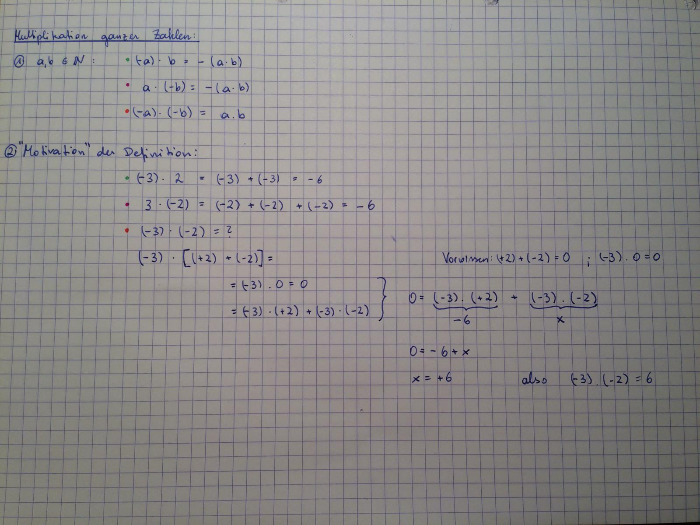 Multiplikation ganzer Zahlen:
① a, b ∈ N: • (-a) · b = - (a·b)
• a · (-b) = - (a·b)
• (-a) · (-b) = a·b
② "Motivation" der Definition:
• (-3) · 2 = (-3) + (-3) = -6
• 3 · (-2) = (-2) + (-2) + (-2) = -6
• (-3) · (-2) = ?
(-3) · [(+2) + (-2)] =
Vorwissen: (+2) + (-2) = 0 ; (-3) · 0 = 0
= (-3) · 0 = 0
= (-3) · (+2) + (-3) · (-2)
0 = (-3) · (+2) + (-3) · (-2)
-6 x
0 = -6 + x
x = +6 also (-3) · (-2) = 6